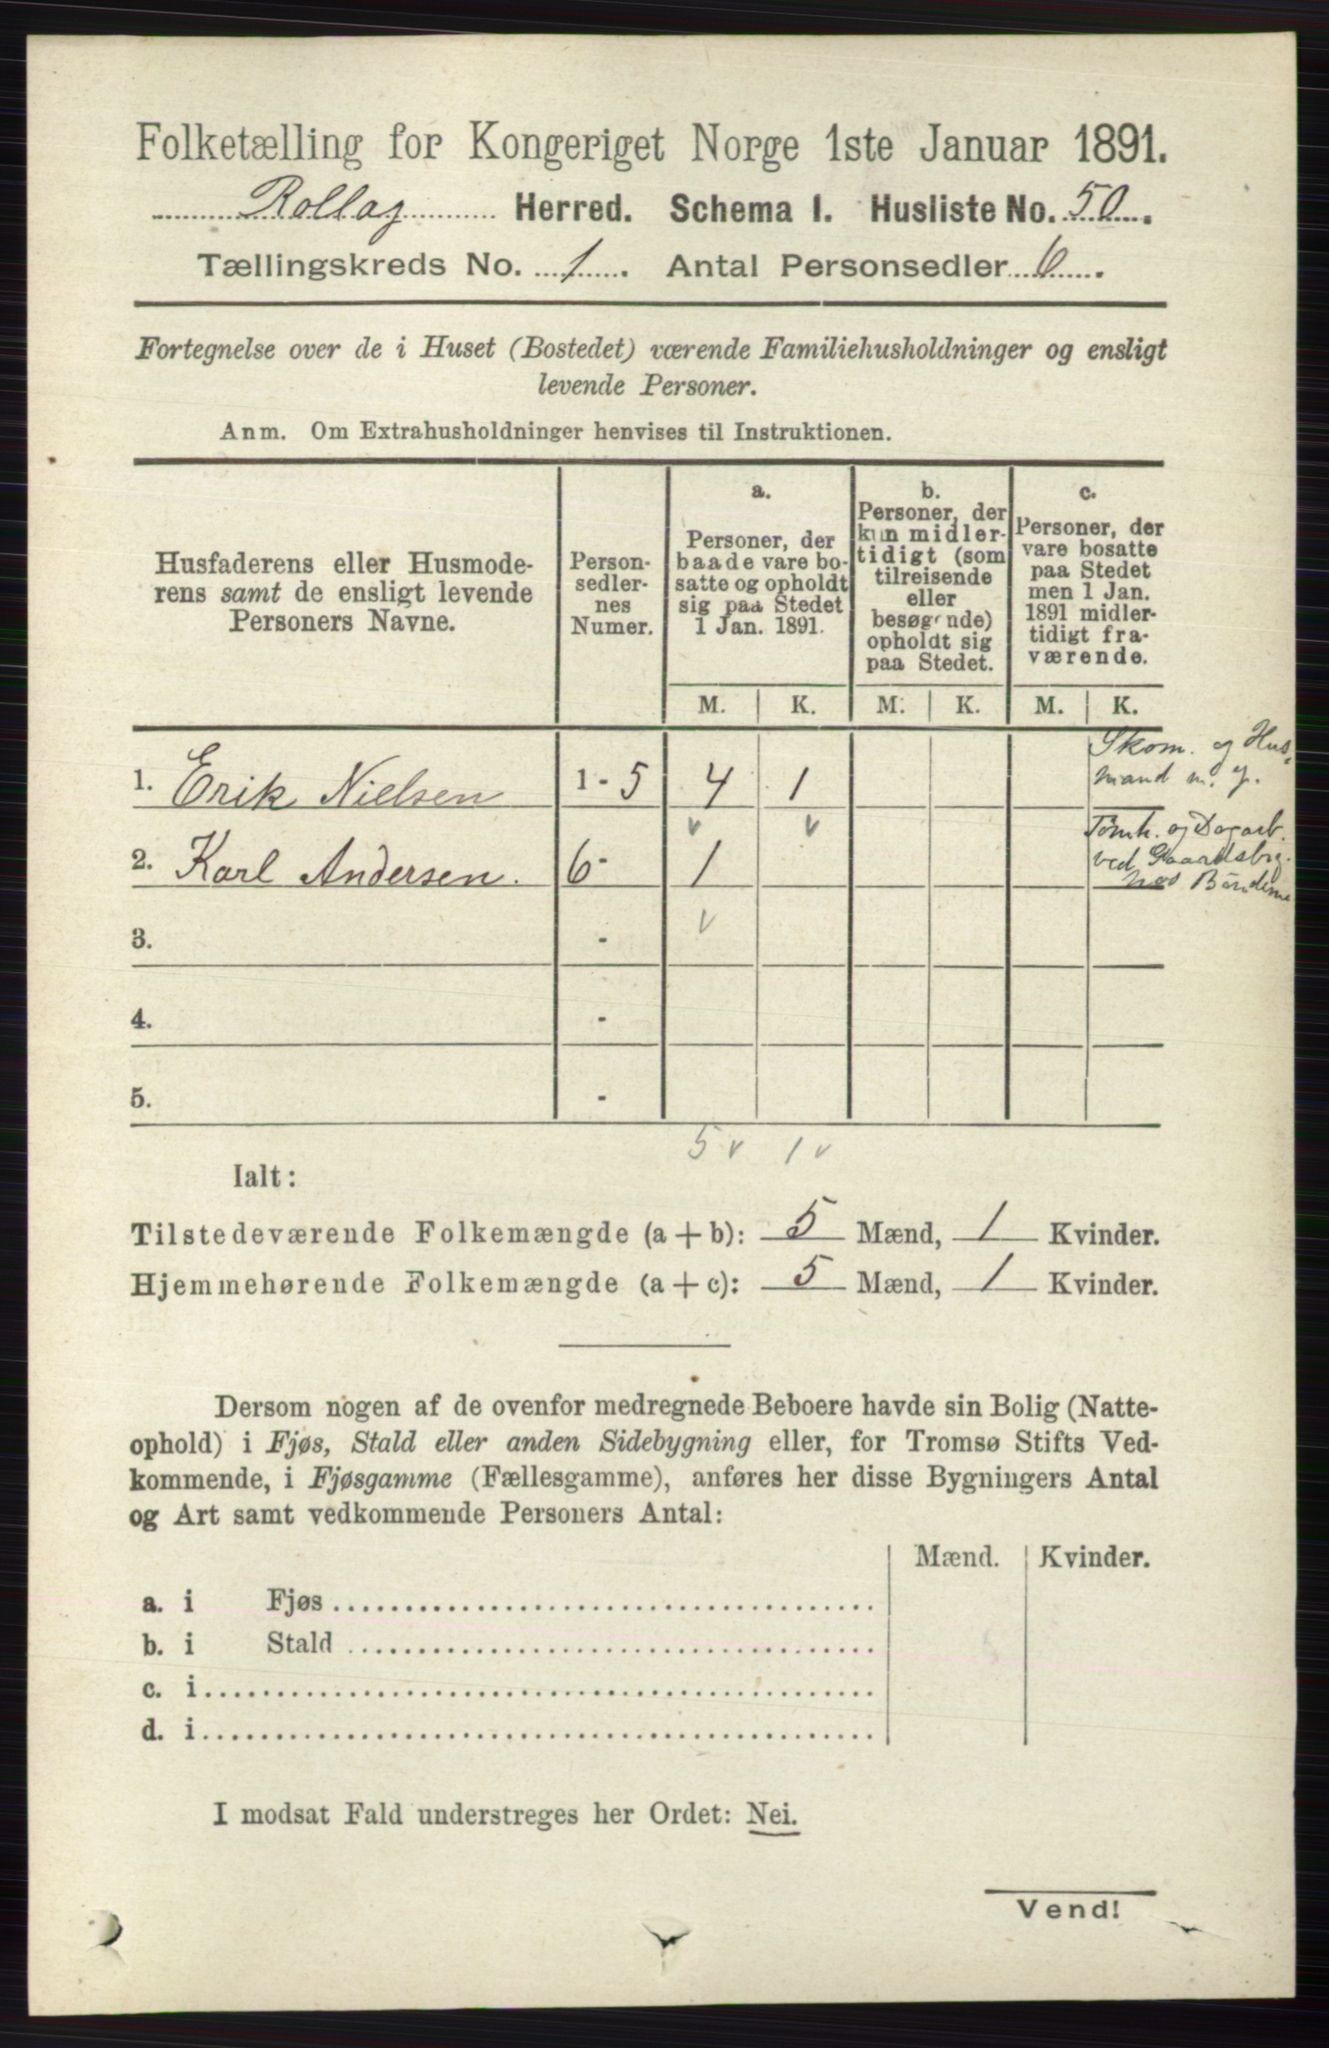 Folketælling for Kongeriget Norge 1ste Januar 1891.
Rollag Herred. Schema I. Husliste No. 50.
Tællingskreds No. 1. Antal Personsedler 6.
Fortegnelse over de i Huset (Bostedet) værende Familiehusholdninger og ensligt
levende Personer.
Anm. Om Extrahusholdninger henvises til Instruktionen.
Husfaderens eller Husmode-
rens samt de ensligt levende
Personers Navne.
Person-
sedler-
nes
Numer.
a.
Personer, der
baade vare bo-
satte og opholdt
sig paa Stedet
1 Jan. 1891.
b.
Personer, der
kun midler-
tidigt (som
tilreisende
eller
besøgende)
opholdt sig
paa Stedet.
c.
Personer, der
vare bosatte
paa Stedet
men 1 Jan.
1891 midler-
tidigt fra-
værende.
M. K. M. K. M. K.
1. Erik Nielsen 1 - 5 4 1
Skom. og Hus-
mand m. J.
v v
2. Karl Andersen. 6 - 1
Tömr. og Dagarb.
ved Gaardsbrg.
hos Bönderne
v
3. -
4. -
5. -
5 v 1 v
Ialt:
Tilstedeværende Folkemængde (a + b): 5 Mænd, 1 Kvinder.
Hjemmehørende Folkemængde (a + c): 5 Mænd, 1 Kvinder.
Dersom nogen af de ovenfor medregnede Beboere havde sin Bolig (Natte-
ophold) i Fjøs, Stald eller anden Sidebygning eller, for Tromsø Stifts Ved-
kommende, i Fjøsgamme (Fællesgamme), anføres her disse Bygningers Antal
og Art samt vedkommende Personers Antal:
Mænd. Kvinder.
a. i Fjøs
b. i Stald
c. i
d. i
I modsat Fald understreges her Ordet: Nei.
Vend!